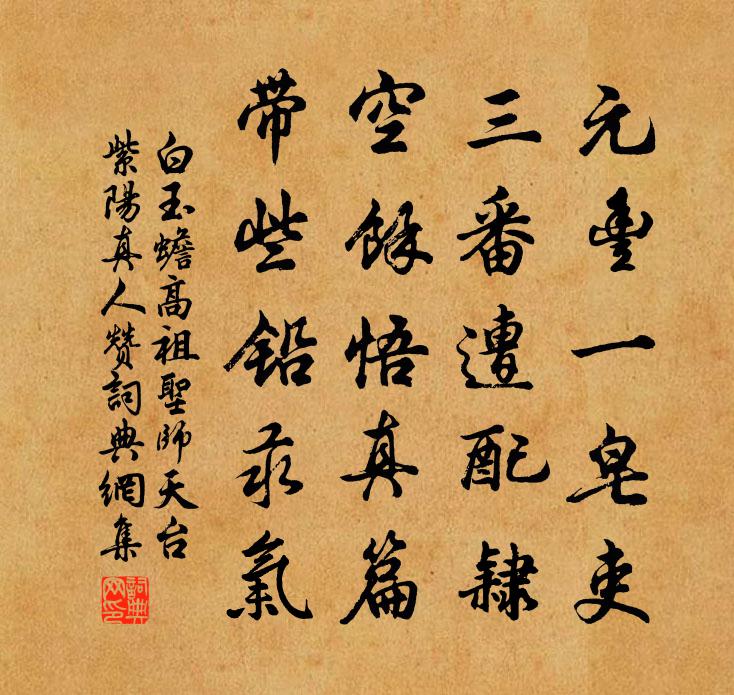 元豐一皂吏
三番遭配隸
空餘悟真篇
帶些鉛汞氣
白玉蟾高祖聖師天台
紫陽真人赞詞典網集
詞典
网印